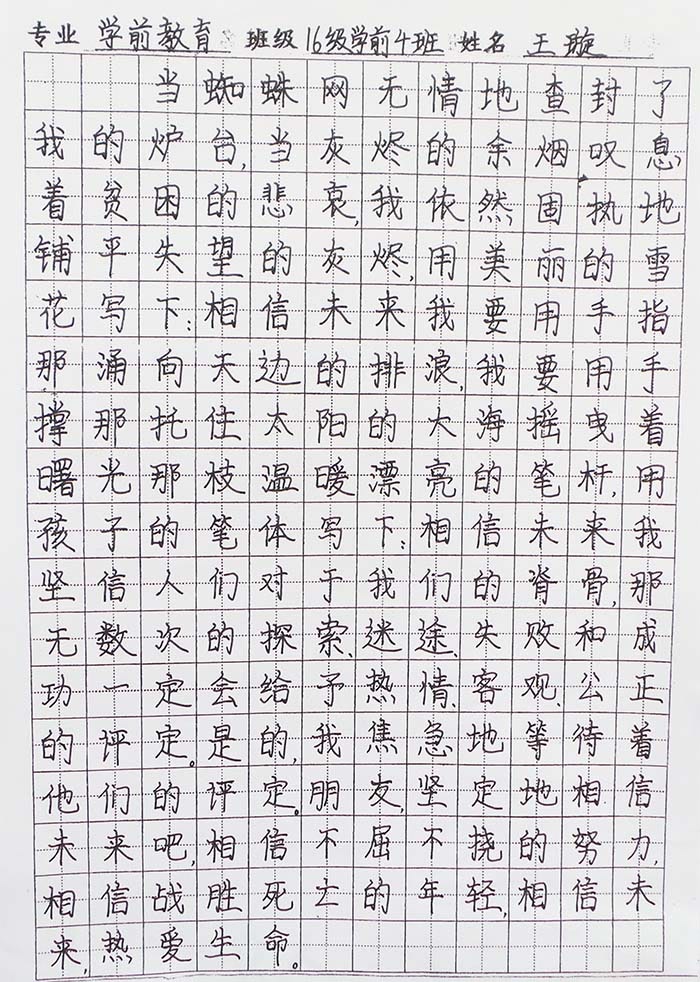 专业 学前教育 班级 16级学前4班 姓名 王璇
当蜘蛛网无情地查封了
我的炉台,当灰烬的余烟叹息
着贫困的悲哀,我依然固执地
铺平失望的灰烬,用美丽的雪
花写下:相信未来我要用手指
那涌向天边的排浪,我要用手
撑那托住太阳的大海摇曳着
曙光那枝温暖漂亮的笔杆,用
孩子的笔体写下:相信未来我
坚信人们对于我们的脊骨,那
无数次的探索、迷途、失败和成
功一定会给予热情、客观、公正
的评定。是的,我焦急地等待着
他们的评定。朋友,坚定地相信
未来吧,相信不屈不挠的努力,
相信战胜死亡的年轻,相信未
来,热爱生命。